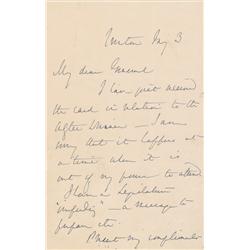 My dear General
I have just received
the card in relation to the
after dinner – I am
sorry that it happens at
a time when it is
out of my power to attend
I have a Legislature
"impending" – a message to
prepare etc.
Present my compliments